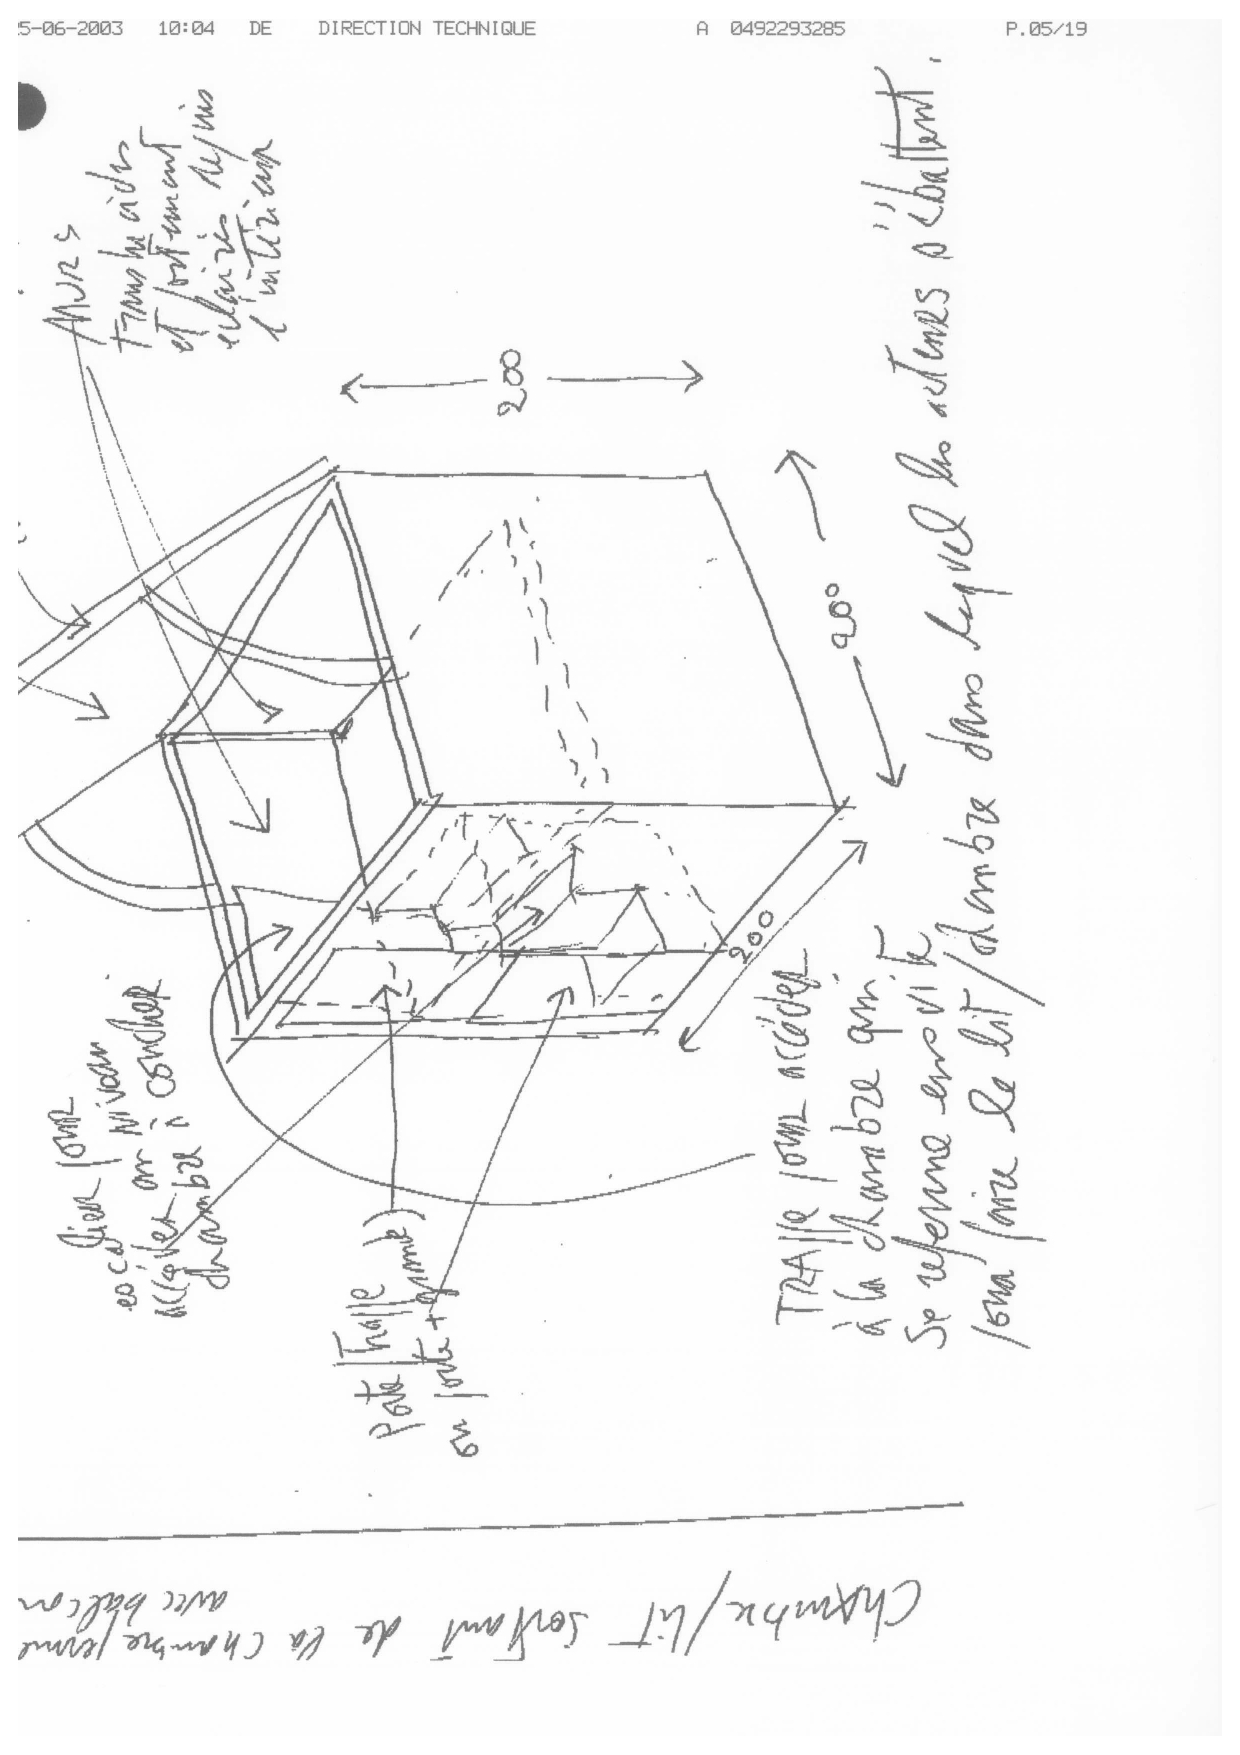 5-06-2003 10:04 DE DIRECTION TECHNIQUE A 0492293285 P.05/19
MURS
translucides
et fortement
éclairés depuis
l'intérieur
200
200
200
escalier pour
accéder au niveau
chambre à coucher
Porte/Trappe
ou porte + grimpe)
TRAPPE pour accéder
à la chambre qui
se referme ensuite
pour faire le lit/chambre dans lequel les acteurs s'ébattent.
Chambre/lit sortant de la chambre ferme
avec balcon